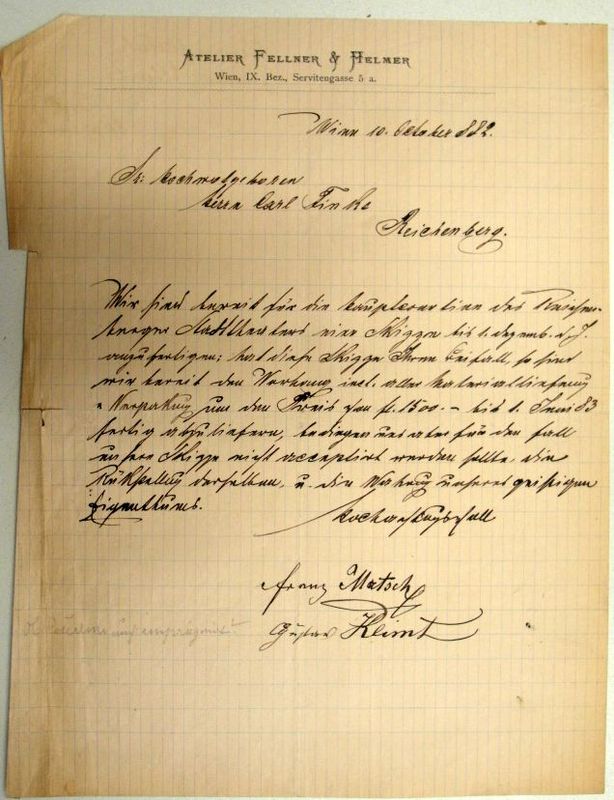 ATELIER FELLNER & HELMER
Wien, IX. Bez., Servitengasse 5 a.
Wien 10. Oktober 882.
Sr: Hochwolgeboren
Herrn Carl Finke
Reichenberg.
Wir sind bereit für die Hauptcourtine des Reichen-
berger Stadttheaters eine Skizze bis 1. Dezemb. d. J.
anzufertigen; hat diese Skizze Ihren Beifall, so sind
wir bereit den Vorhang incl. aller Materiallieferung
u Verpakung um den Preis von fl. 1500.– bis 1. Juni 83
fertig abzuliefern, bedingen uns aber für den Fall
unsere Skizze nicht acceptirt werden sollte, die
Rükstellung derselben, u. die Wahrung unseres geistigen
Eigenthums.
Hochachtungsvoll
Franz Matsch
Gustav Klimt